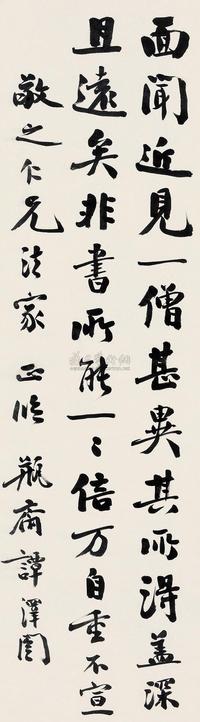 面聞近見一僧甚異其所得蓋深
且遠矣非書所能一〻信万自重不宣
敬之仁兄法家正临 瓶齋譚澤闓